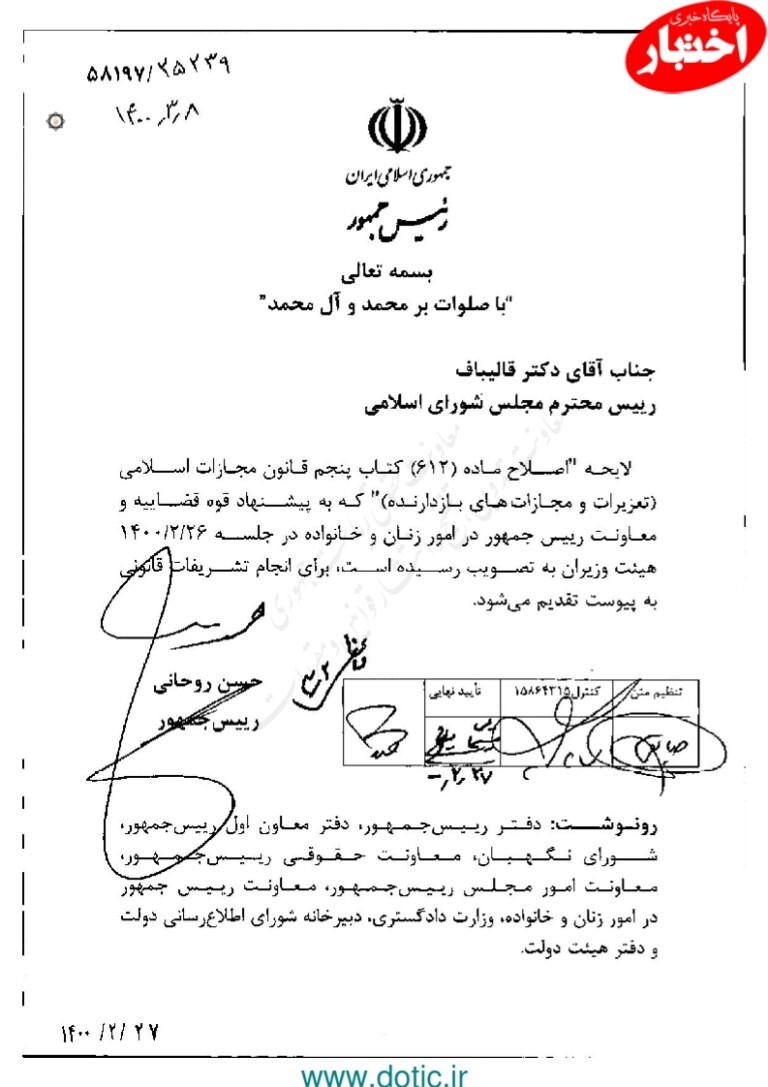 پایگاه خبری
اختبار
۵۸۱۹۷/۲۵۲۳۹
۱۴۰۰,۳,۸
جمهوری اسلامی ایران
رئیس جمهور
بسمه تعالی
"با صلوات بر محمد و آل محمد"
جناب آقای دکتر قالیباف
رییس محترم مجلس شورای اسلامی
لایحه "اصلاح ماده (۶۱۲) کتاب پنجم قانون مجازات اسلامی
(تعزیرات و مجازات‌های بازدارنده)" که به پیشنهاد قوه قضاییه و
معاونت رییس جمهور در امور زنان و خانواده در جلسه ۱۴۰۰/۲/۲۶
هیئت وزیران به تصویب رسیده است، برای انجام تشریفات قانونی
به پیوست تقدیم می‌شود.
حسن روحانی
رییس‌جمهور
تنظیم متن
کنترل ۱۵۸۶۴۳۱۵
تأیید نهایی
رونوشت: دفتر رییس‌جمهور، دفتر معاون اول رییس‌جمهور،
شورای نگهبان، معاونت حقوقی رییس‌جمهور،
معاونت امور مجلس رییس‌جمهور، معاونت رییس جمهور
در امور زنان و خانواده، وزارت دادگستری، دبیرخانه شورای اطلاع‌رسانی دولت
و دفتر هیئت دولت.
۱۴۰۰/۲/۲۷
www.dotic.ir